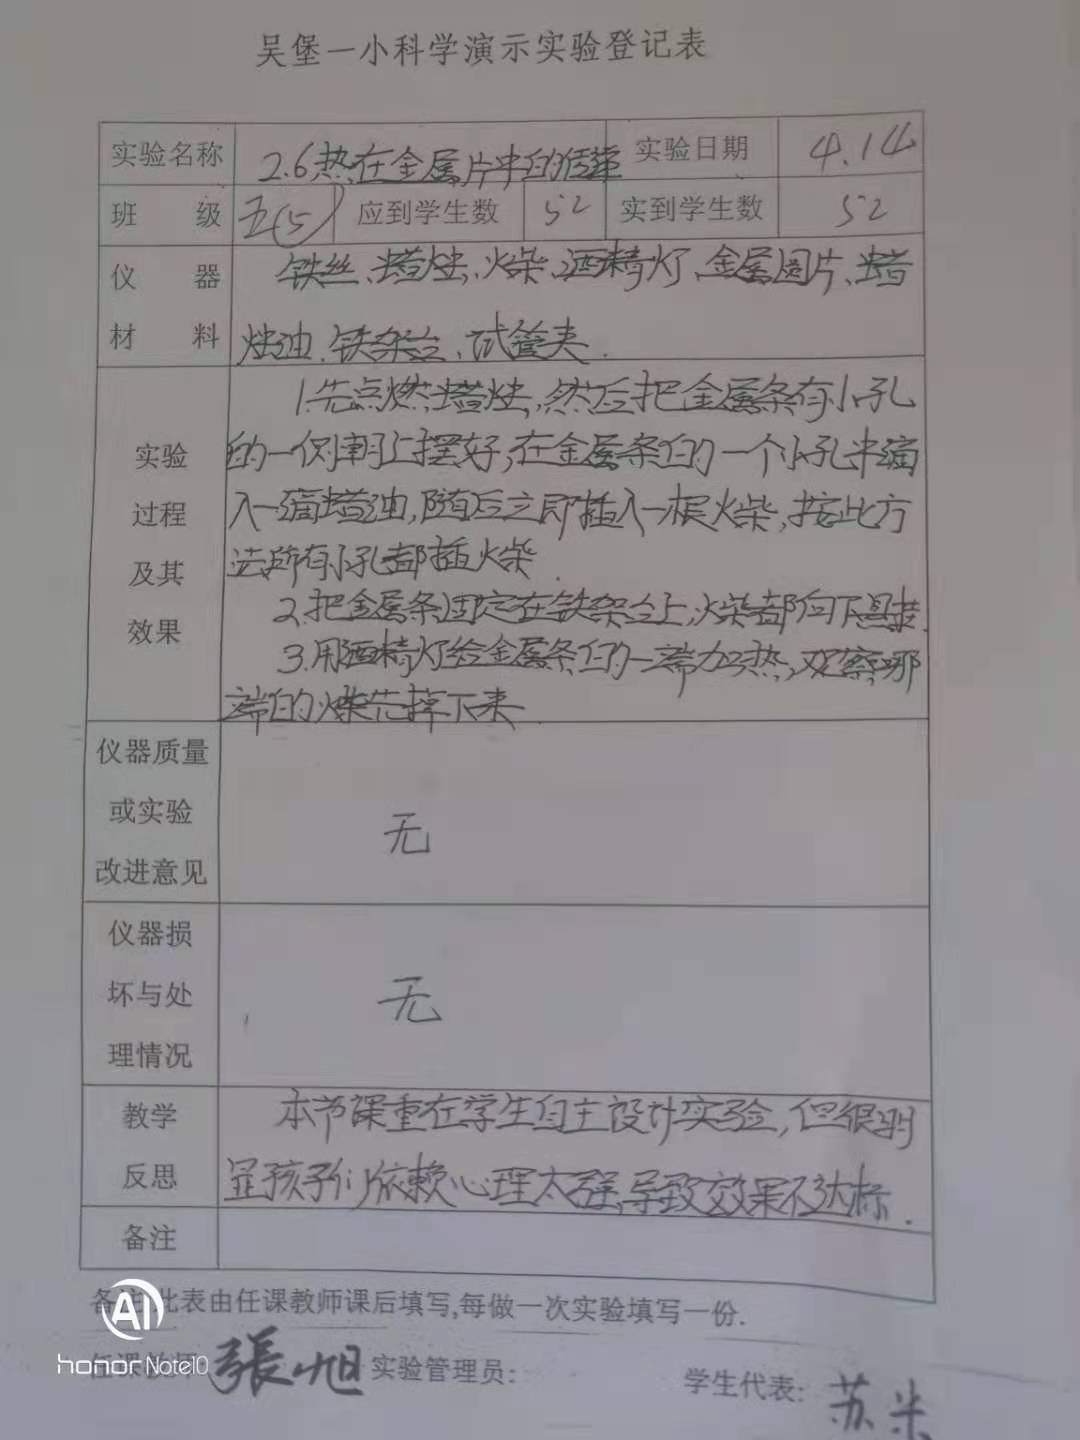 吴堡一小科学演示实验登记表
实验名称 2.6热在金属片中的传 实验日期 4.14
班 级 五(5) 应到学生数 52 实到学生数 52
仪 器 铁丝、蜡烛、火柴、酒精灯、金属圆片、蜡
材 料 烛油、铁架台、试管夹.
实验
过程
及其
效果
1.先点燃蜡烛,然后把金属条有小孔
的一侧朝上摆好,在金属条的一个小孔中滴
入一滴蜡油,随后立即插入一根火柴,按此方
法所有小孔都插火柴.
2.把金属条固定在铁架台上,火柴都向下悬挂.
3.用酒精灯给金属条的一端加热,观察哪
端的火柴先掉下来.
仪器质量
或实验
改进意见
无
仪器损
坏与处
理情况
无
教学
反思
本节课重在学生自主设计实验,但很明
显孩子们依赖心理太强,导致效果不达标.
备注
备注:此表由任课教师课后填写,每做一次实验填写一份.
任课教师 張旭 实验管理员: 学生代表: 苏米
AI
honor Note10